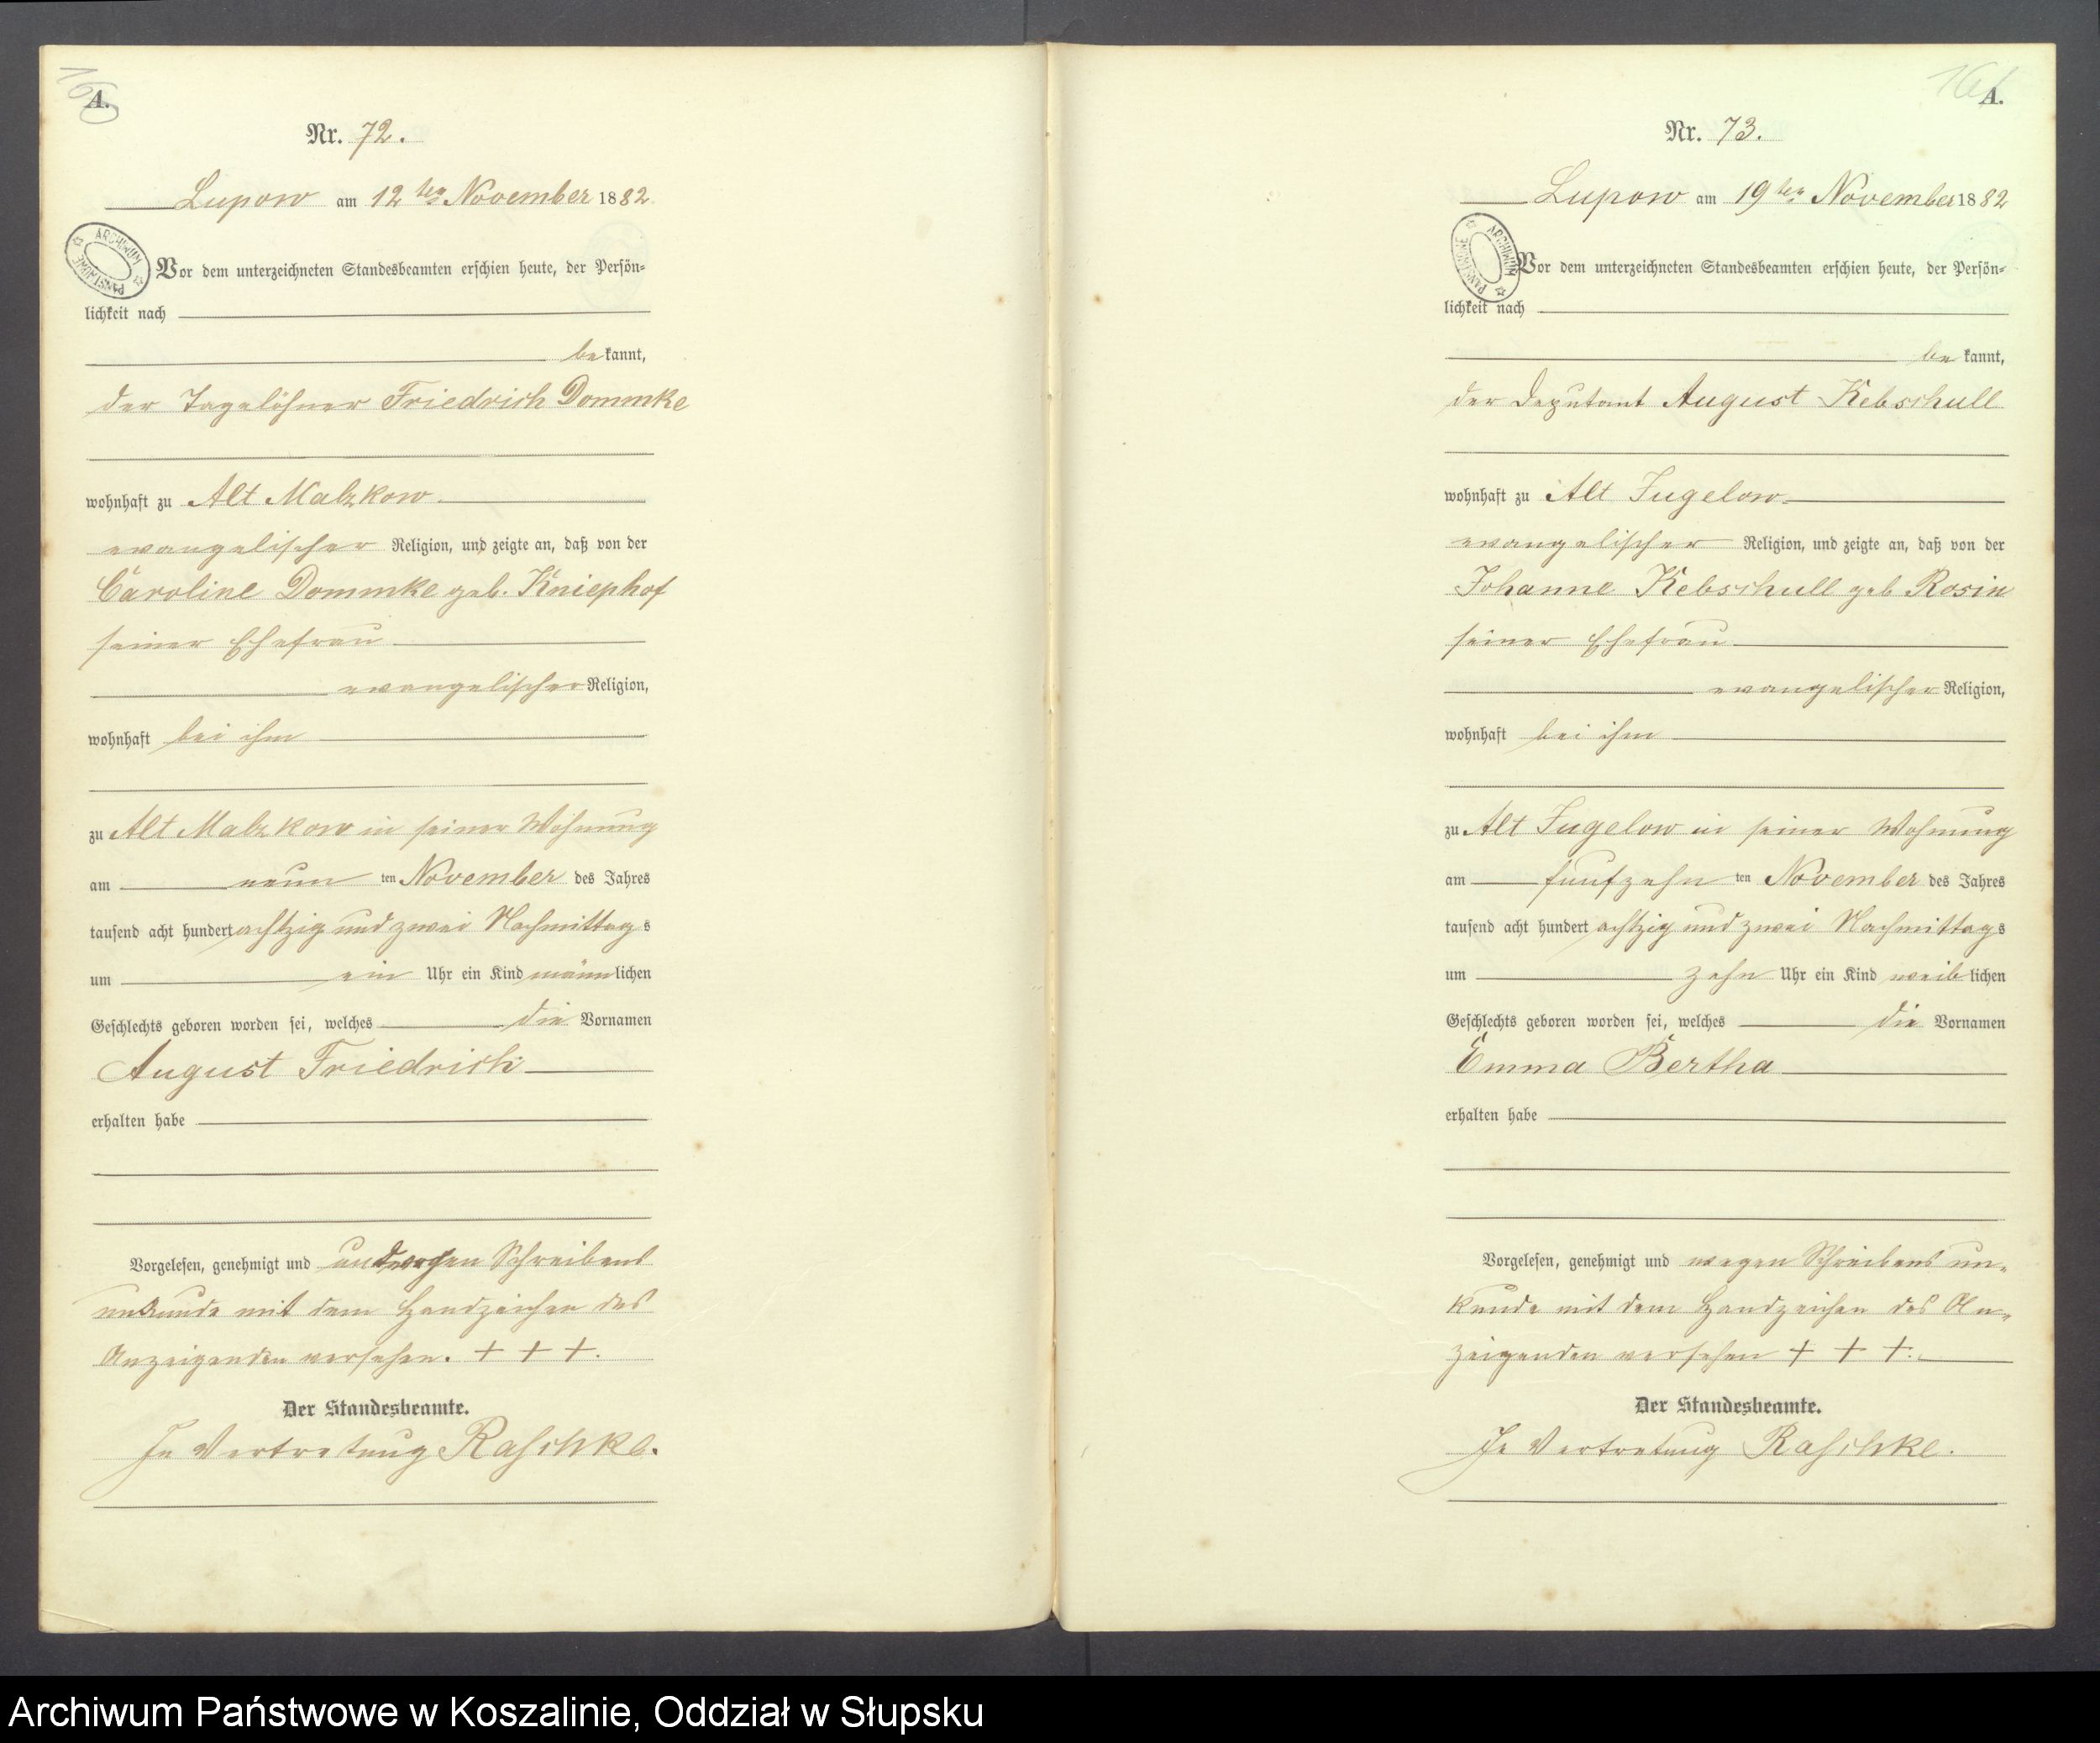 160
A.
Nr. 72.
Lupow am 12ten November 1882
ARCHIWUM PAŃSTWOWE
Vor dem unterzeichneten Standesbeamten erschien heute, der Persön=
lichkeit nach
bekannt,
der Tagelöhner Friedrich Dommke
wohnhaft zu Alt Malzkow
evangelischer Religion, und zeigte an, daß von der
Caroline Dommke geb. Kniephof
seiner Ehefrau
evangelischer Religion,
wohnhaft bei ihm
zu Alt Malzkow in seiner Wohnung
am neun ten November des Jahres
tausend acht hundert achtzig und zwei Nachmittags
um ein Uhr ein Kind männlichen
Geschlechts geboren worden sei, welches die Vornamen
August Friedrich
erhalten habe
Vorgelesen, genehmigt und und wegen Schreibens
unkunde mit dem Handzeichen des
Anzeigenden versehen. + + +.
Der Standesbeamte.
In Vertretung Raschke.
161
A.
Nr. 73.
Lupow am 19ten November 1882
ARCHIWUM PAŃSTWOWE
Vor dem unterzeichneten Standesbeamten erschien heute, der Persön=
lichkeit nach
bekannt,
der Deputant August Kebschull
wohnhaft zu Alt Jugelow
evangelischer Religion, und zeigte an, daß von der
Johanne Kebschull geb Rosin
seiner Ehefrau
evangelischer Religion,
wohnhaft bei ihm
zu Alt Jugelow in seiner Wohnung
am funfzehn ten November des Jahres
tausend acht hundert achtzig und zwei Nachmittags
um zehn Uhr ein Kind weiblichen
Geschlechts geboren worden sei, welches die Vornamen
Emma Bertha
erhalten habe
Vorgelesen, genehmigt und wegen Schreibens un=
kunde mit dem Handzeichen des An=
zeigenden versehen + + +.
Der Standesbeamte.
In Vertretung Raschke.
Archiwum Państwowe w Koszalinie, Oddział w Słupsku